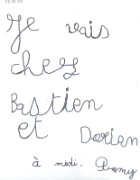 Je vais
chez
Bastien
et Dorian
à midi. Romy